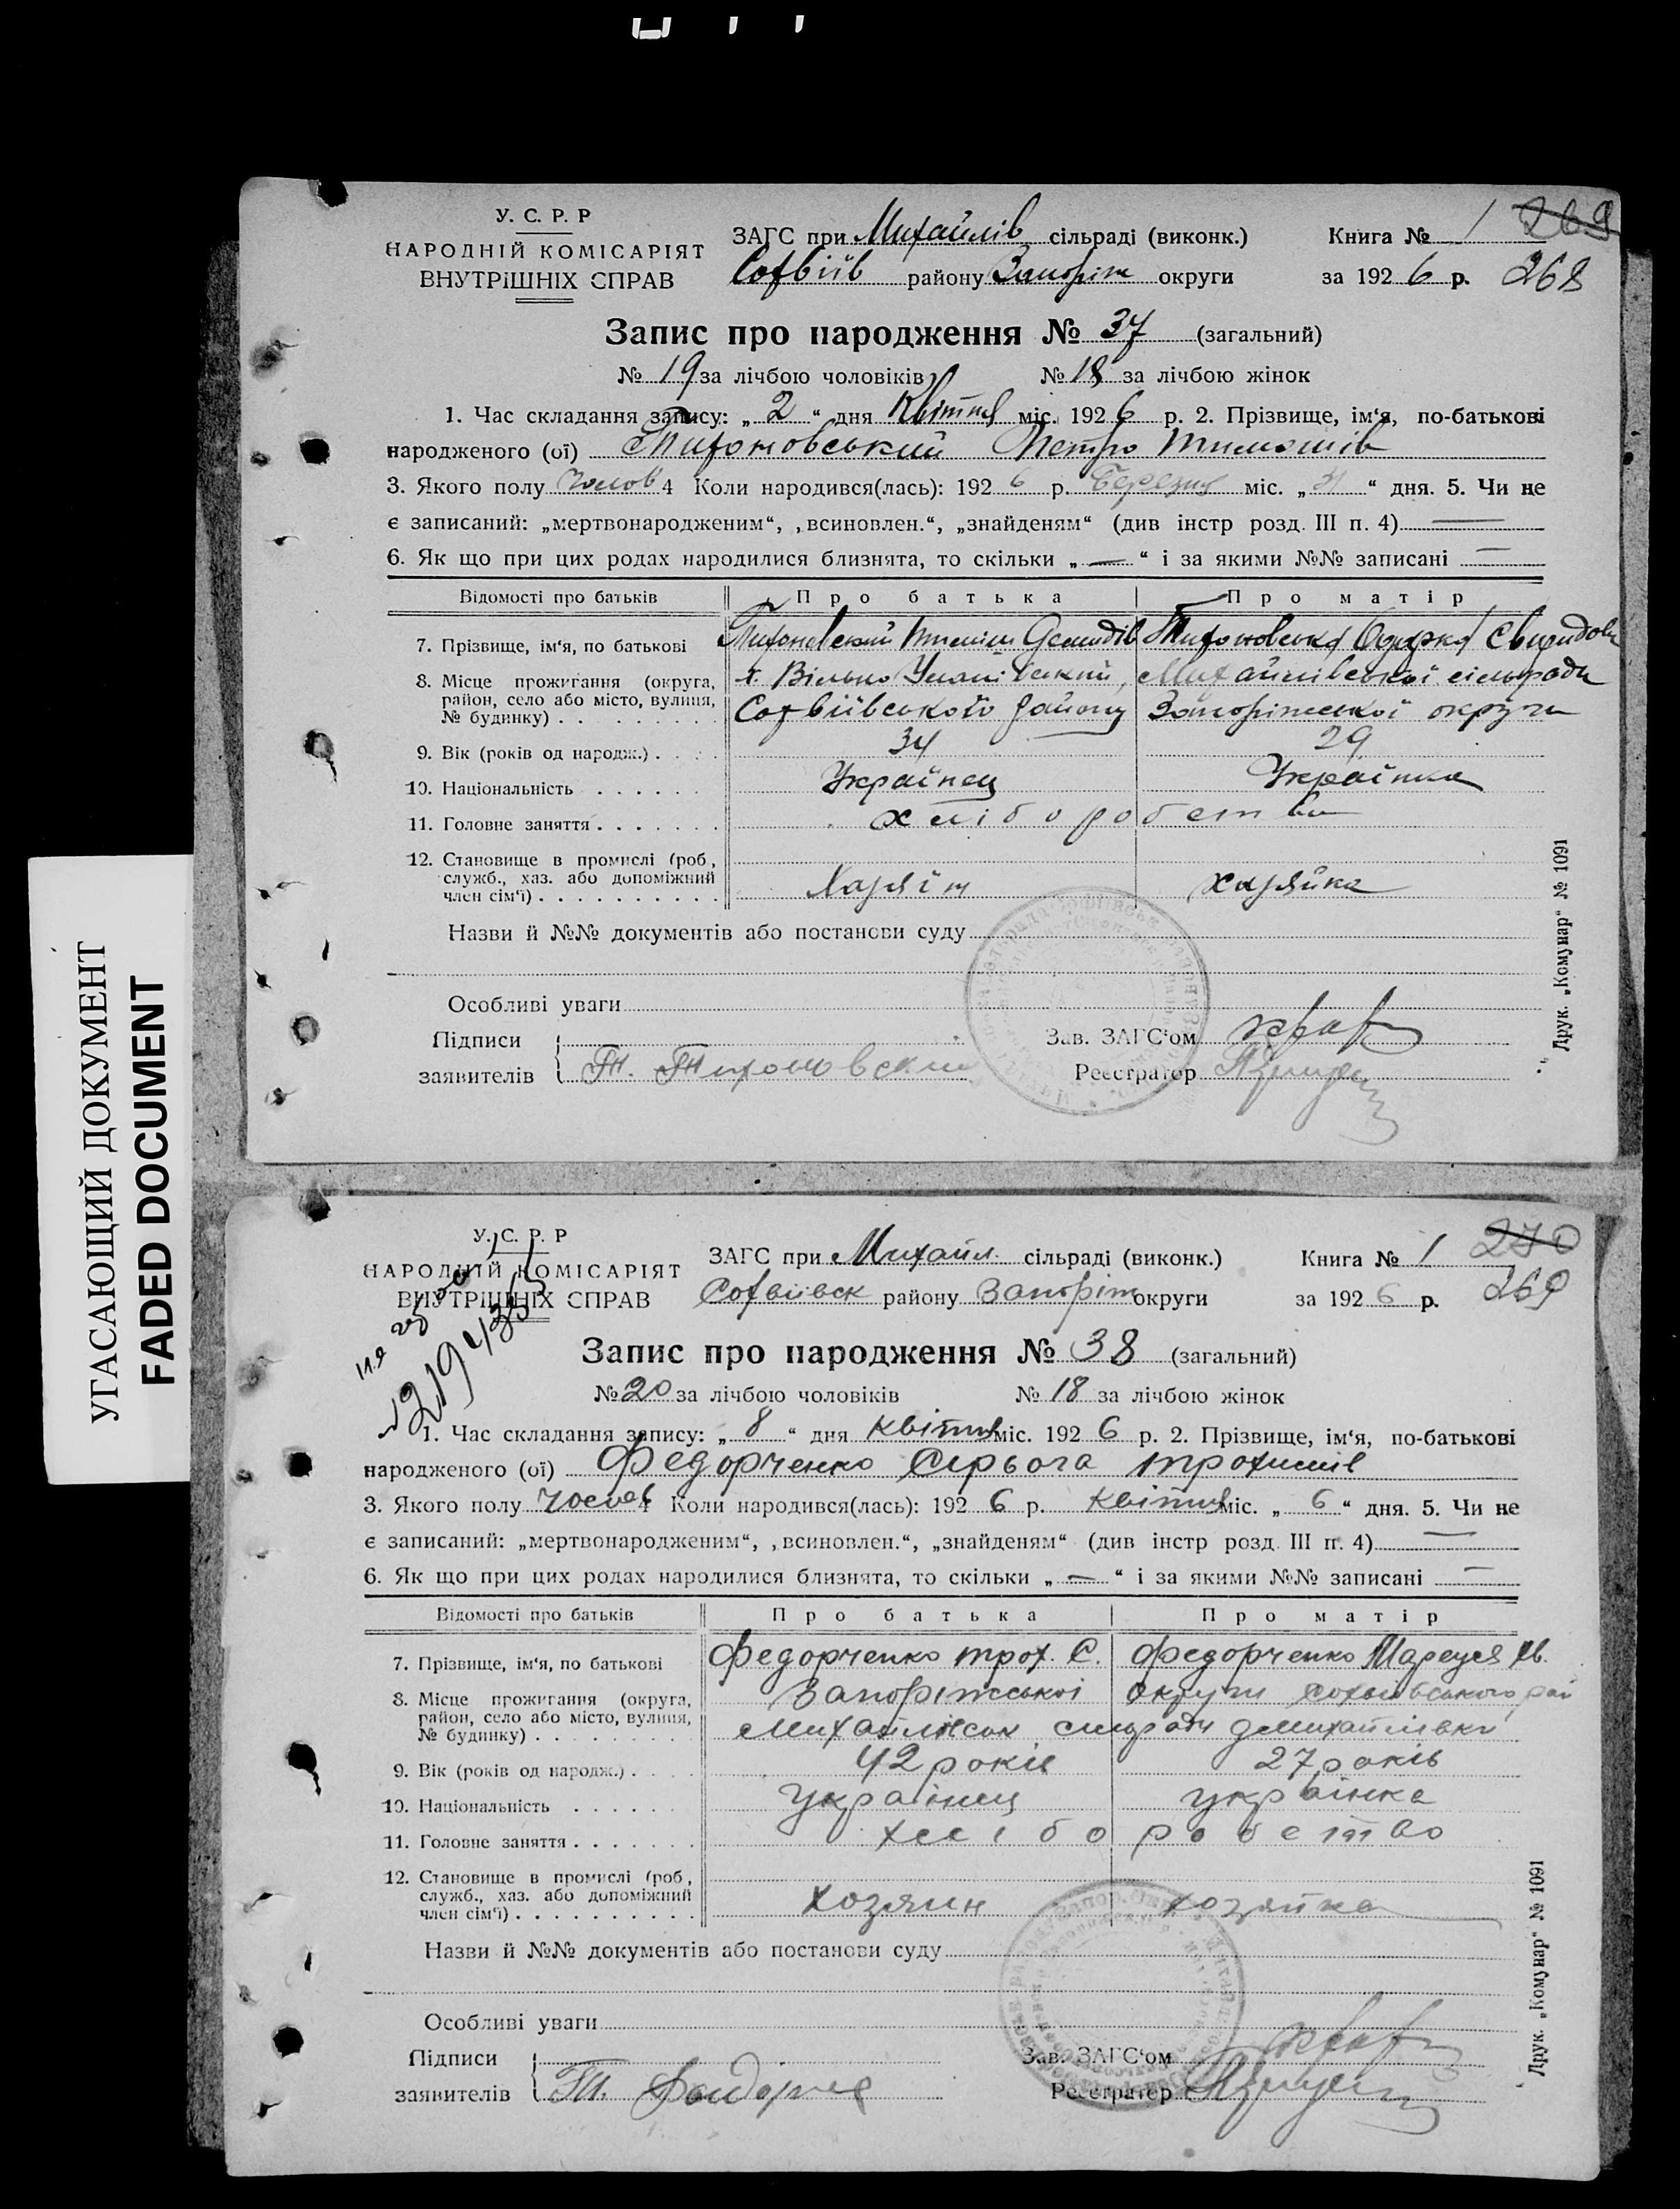 УГАСАЮЩИЙ ДОКУМЕНТ
FADED DOCUMENT
У. С. Р. Р
НАРОДНІЙ КОМІСАРІЯТ
ВНУТРІШНІХ СПРАВ
ЗАГС при Михайлів сільраді (виконк.) Книга № 1 269
Софіїв району Запоріж округи за 1926 р. 268
Запис про народження № 37 (загальний)
№ 19 за лічбою чоловіків № 18 за лічбою жінок
1. Час складання запису: „ 2 “ дня Квітня міс. 1926 р. 2. Прізвище, ім‘я, по-батькові
народженого (ої) Тихоновський Петро Тимошів
3. Якого полу чолов 4 Коли народився(лась): 1926 р. Березня міс. „ 31 “ дня. 5. Чи не
є записаний: „мертвонародженим“, „всиновлен.“, „знайденям“ (див інстр розд. III п. 4)
6. Як що при цих родах народилися близнята, то скільки „ — “ і за якими №№ записані —
Відомості про батьків Про батька Про матір
7. Прізвище, ім‘я, по батькові Тихоновський Тиміш Демидів Тихоновська Одарка Свиридовн
8. Місце прожигання (округа, район, село або місто, вулиця, № будинку) х. Вільно Уланівський, Михайлівської сільради
Софіївського району Запоріжської округи
9. Вік (років од народж.) 34 29
10. Національність Українец Українка
11. Головне заняття хліборобство
12. Становище в промислі (роб, служб., хаз. або допоміжний член сім‘ї) Хазяїн хазяйка
Назви й №№ документів або постанови суду
Особливі уваги
Підписи Зав. ЗАГС‘ом
заявителів Т. Тихоновский Реєстратор
Друк. „Комунар“ № 1091
У. С. Р. Р
НАРОДНІЙ КОМІСАРІЯТ
ВНУТРІШНІХ СПРАВ
ЗАГС при Михайл. сільраді (виконк.) Книга № 1 270
Софиівск району Запоріж округи за 1926 р. 269
Запис про народження № 38 (загальний)
№ 20 за лічбою чоловіків № 18 за лічбою жінок
1. Час складання запису: „ 8 “ дня квітня міс. 1926 р. 2. Прізвище, ім‘я, по-батькові
народженого (ої) Федорченко Сірьога Трохимів
3. Якого полу чолов 4 Коли народився(лась): 1926 р. Квітня міс. „ 6 “ дня. 5. Чи не
є записаний: „мертвонародженим“, „всиновлен.“, „знайденям“ (див інстр розд. III п. 4)
6. Як що при цих родах народилися близнята, то скільки „ — “ і за якими №№ записані —
Відомості про батьків Про батька Про матір
7. Прізвище, ім‘я, по батькові Федорченко Трох. С. Федорченко Маруся Ів.
8. Місце прожигання (округа, район, село або місто, вулиця, № будинку) Запоріжської округи Софиівського рай
Михайлівськ сільради с Михайлівки
9. Вік (років од народж.) 42 років 27 років
10. Національність Українец українка
11. Головне заняття хліборобство
12. Становище в промислі (роб, служб., хаз. або допоміжний член сім‘ї) хозяин хозяйка
Назви й №№ документів або постанови суду
Особливі уваги
Підписи Зав. ЗАГС‘ом
заявителів Реєстратер
Друк. „Комунар“ № 1091